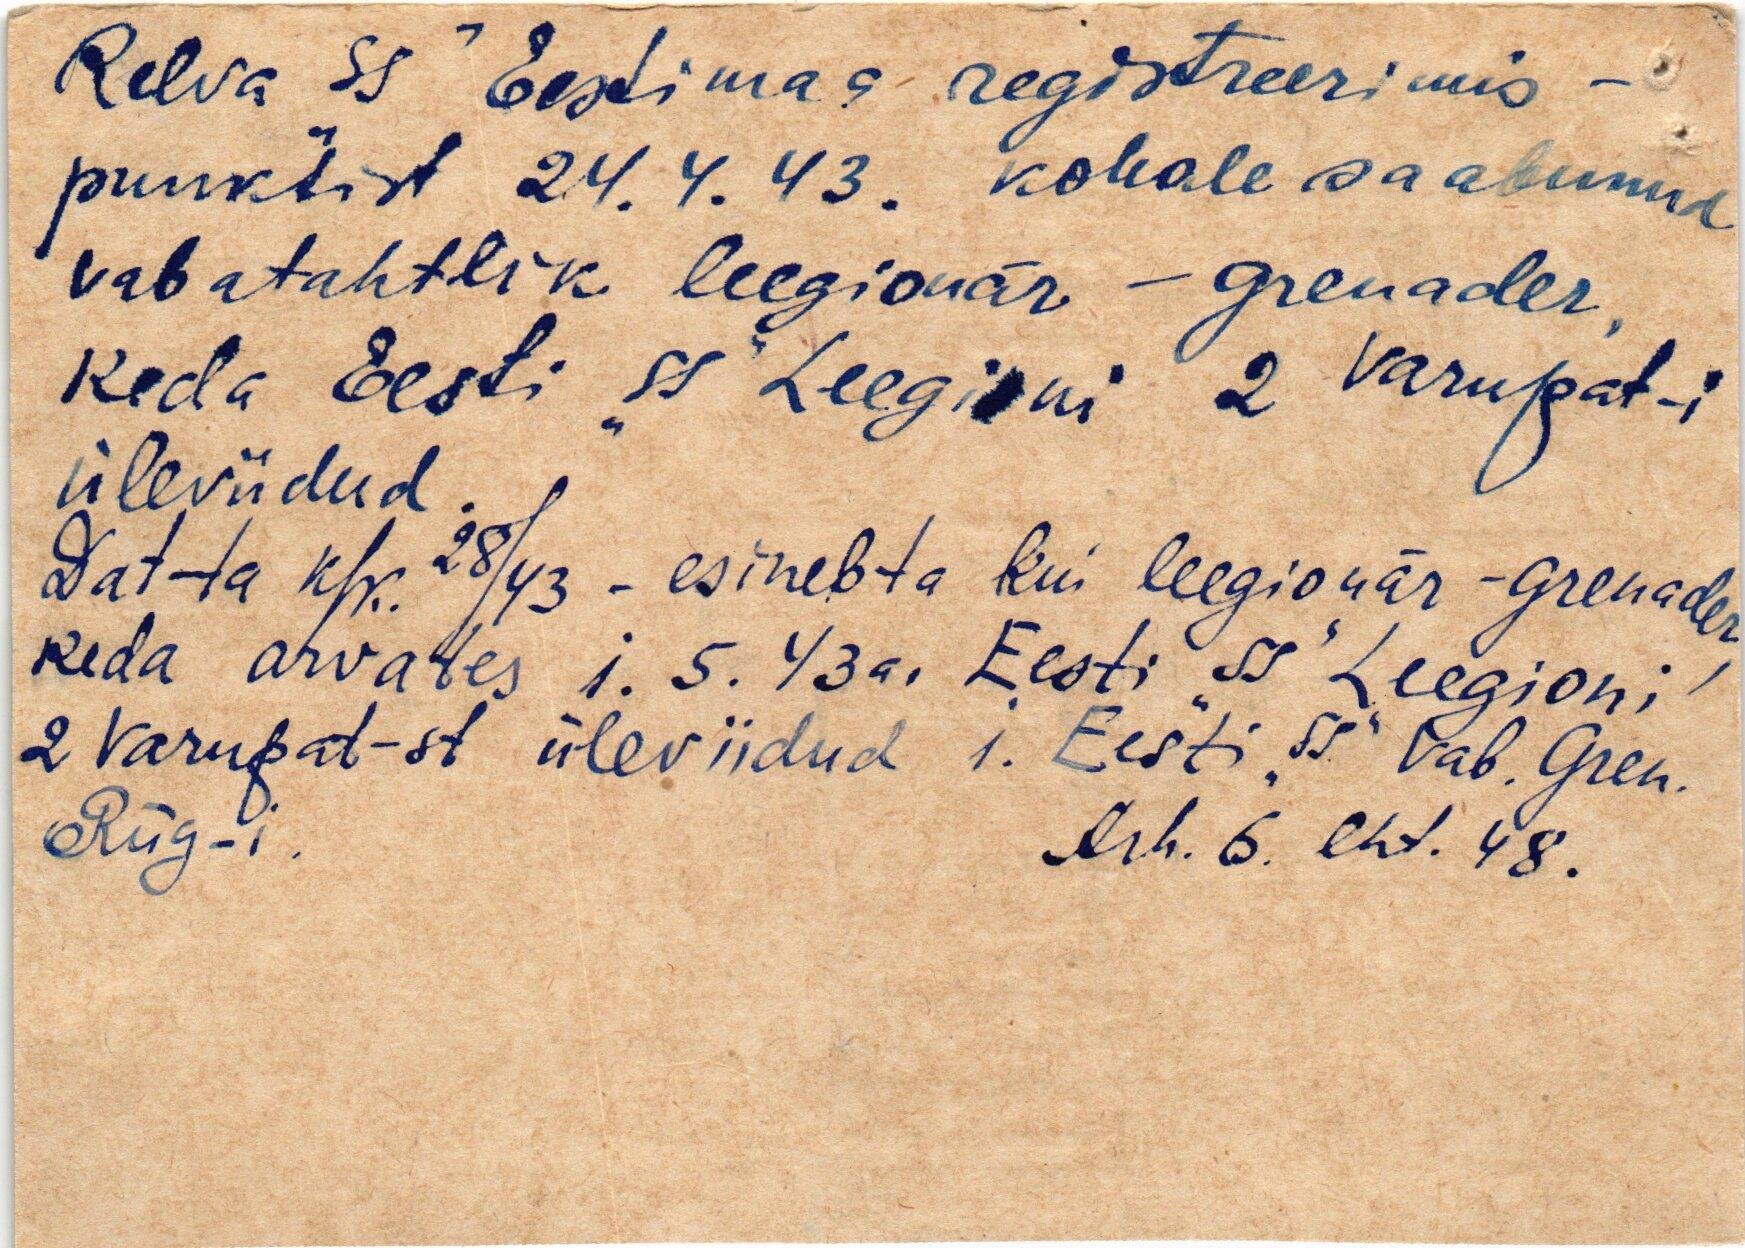 Relva SS" Eestimaa registreerimis-
punktist 24. 4. 43. kohale saabunud
vabatahtlik leegionär - grenader,
keda Eesti „SS" Leegioni 2 Varupat-i
üleviidud.
Dat-ta k/k. 28/43 - esineb ta kui leegionär - grenader,
keda arvates 1. 5. 43 a. Eesti „SS" Leegioni
2 Varupat-st üleviidud 1. Eesti „SS" Vab. Gren.
Rüg-i. Arh. 6. lht. 48.